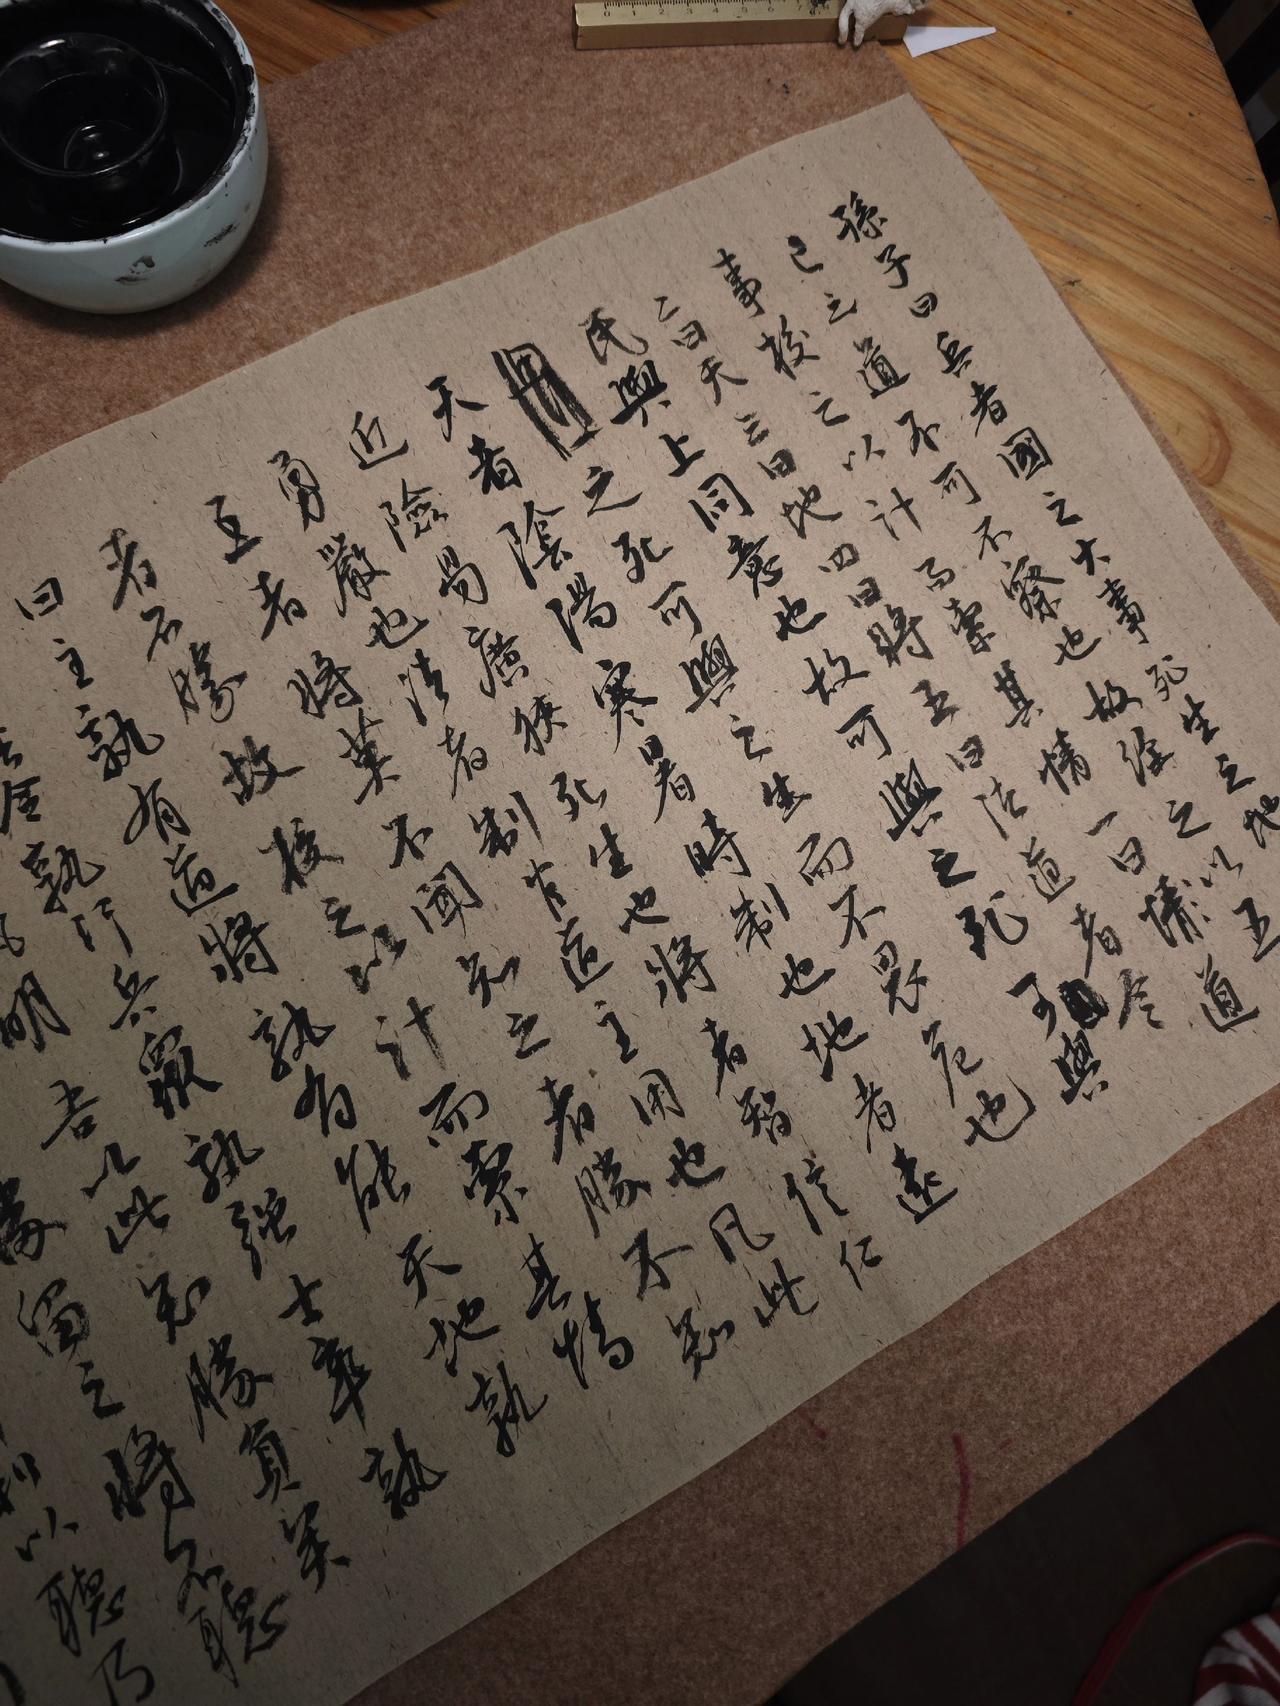 孫子曰兵者國之大事死生之地
已之道不可不察也故經之以五
事校之以計而索其情一曰情道
二曰天三曰地四曰將五曰法道者令
民與上同意也故可與之死可與
之死可與之生而不畏危也
天者陰陽寒暑時制也地者遠
近險易廣狹死生也將者智信仁
勇嚴也法者制官道主用也凡此
五者將莫不聞知之者勝不知
者不勝故校之以計而索其情
曰主孰有道將孰有能天地孰
法令孰行兵衆孰強士卒孰
明吾以此知勝負矣
勝留之將不聽
利以聽乃